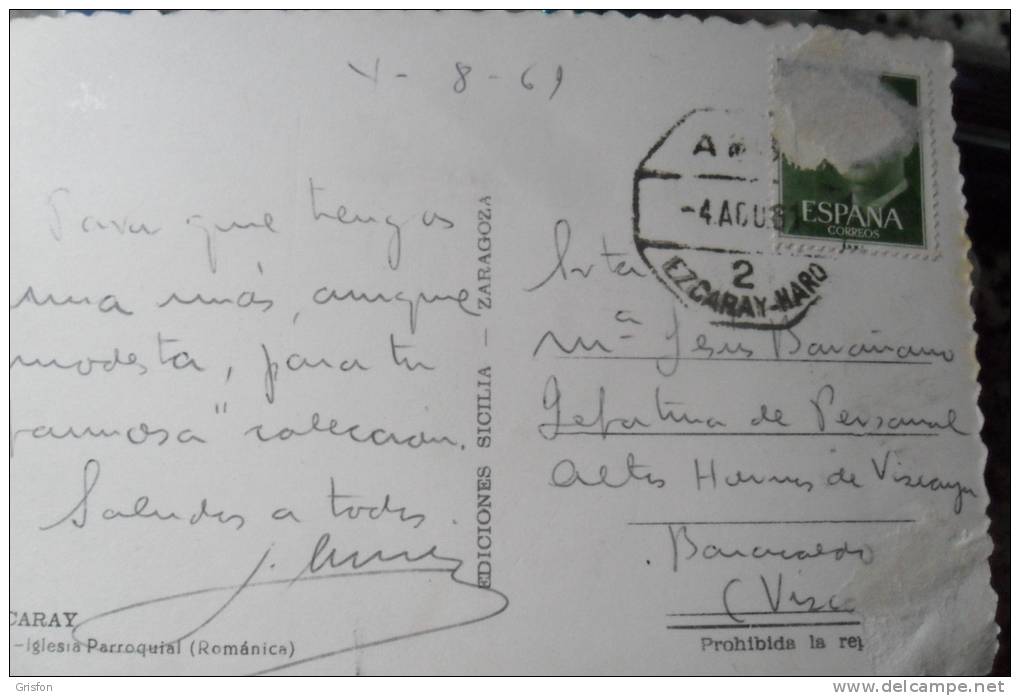 V - 8 - 61
Para que tengas
una más, aunque
modesta, para tu
famosa" colección.
Saludos a todos.
J.
CARAY
-Iglesia Parroquial (Románica)
EDICIONES SICILIA - ZARAGOZA
ESPAÑA
CORREOS
-4 AGO 61
2
EZCARAY-HARO
Srta
Mª Jesús Barañano
Jefatura de Personal
Altos Hornos de Vizcaya
Baracaldo
(Vizc
Prohibida la rep
Grisfon
www.delcampe.net